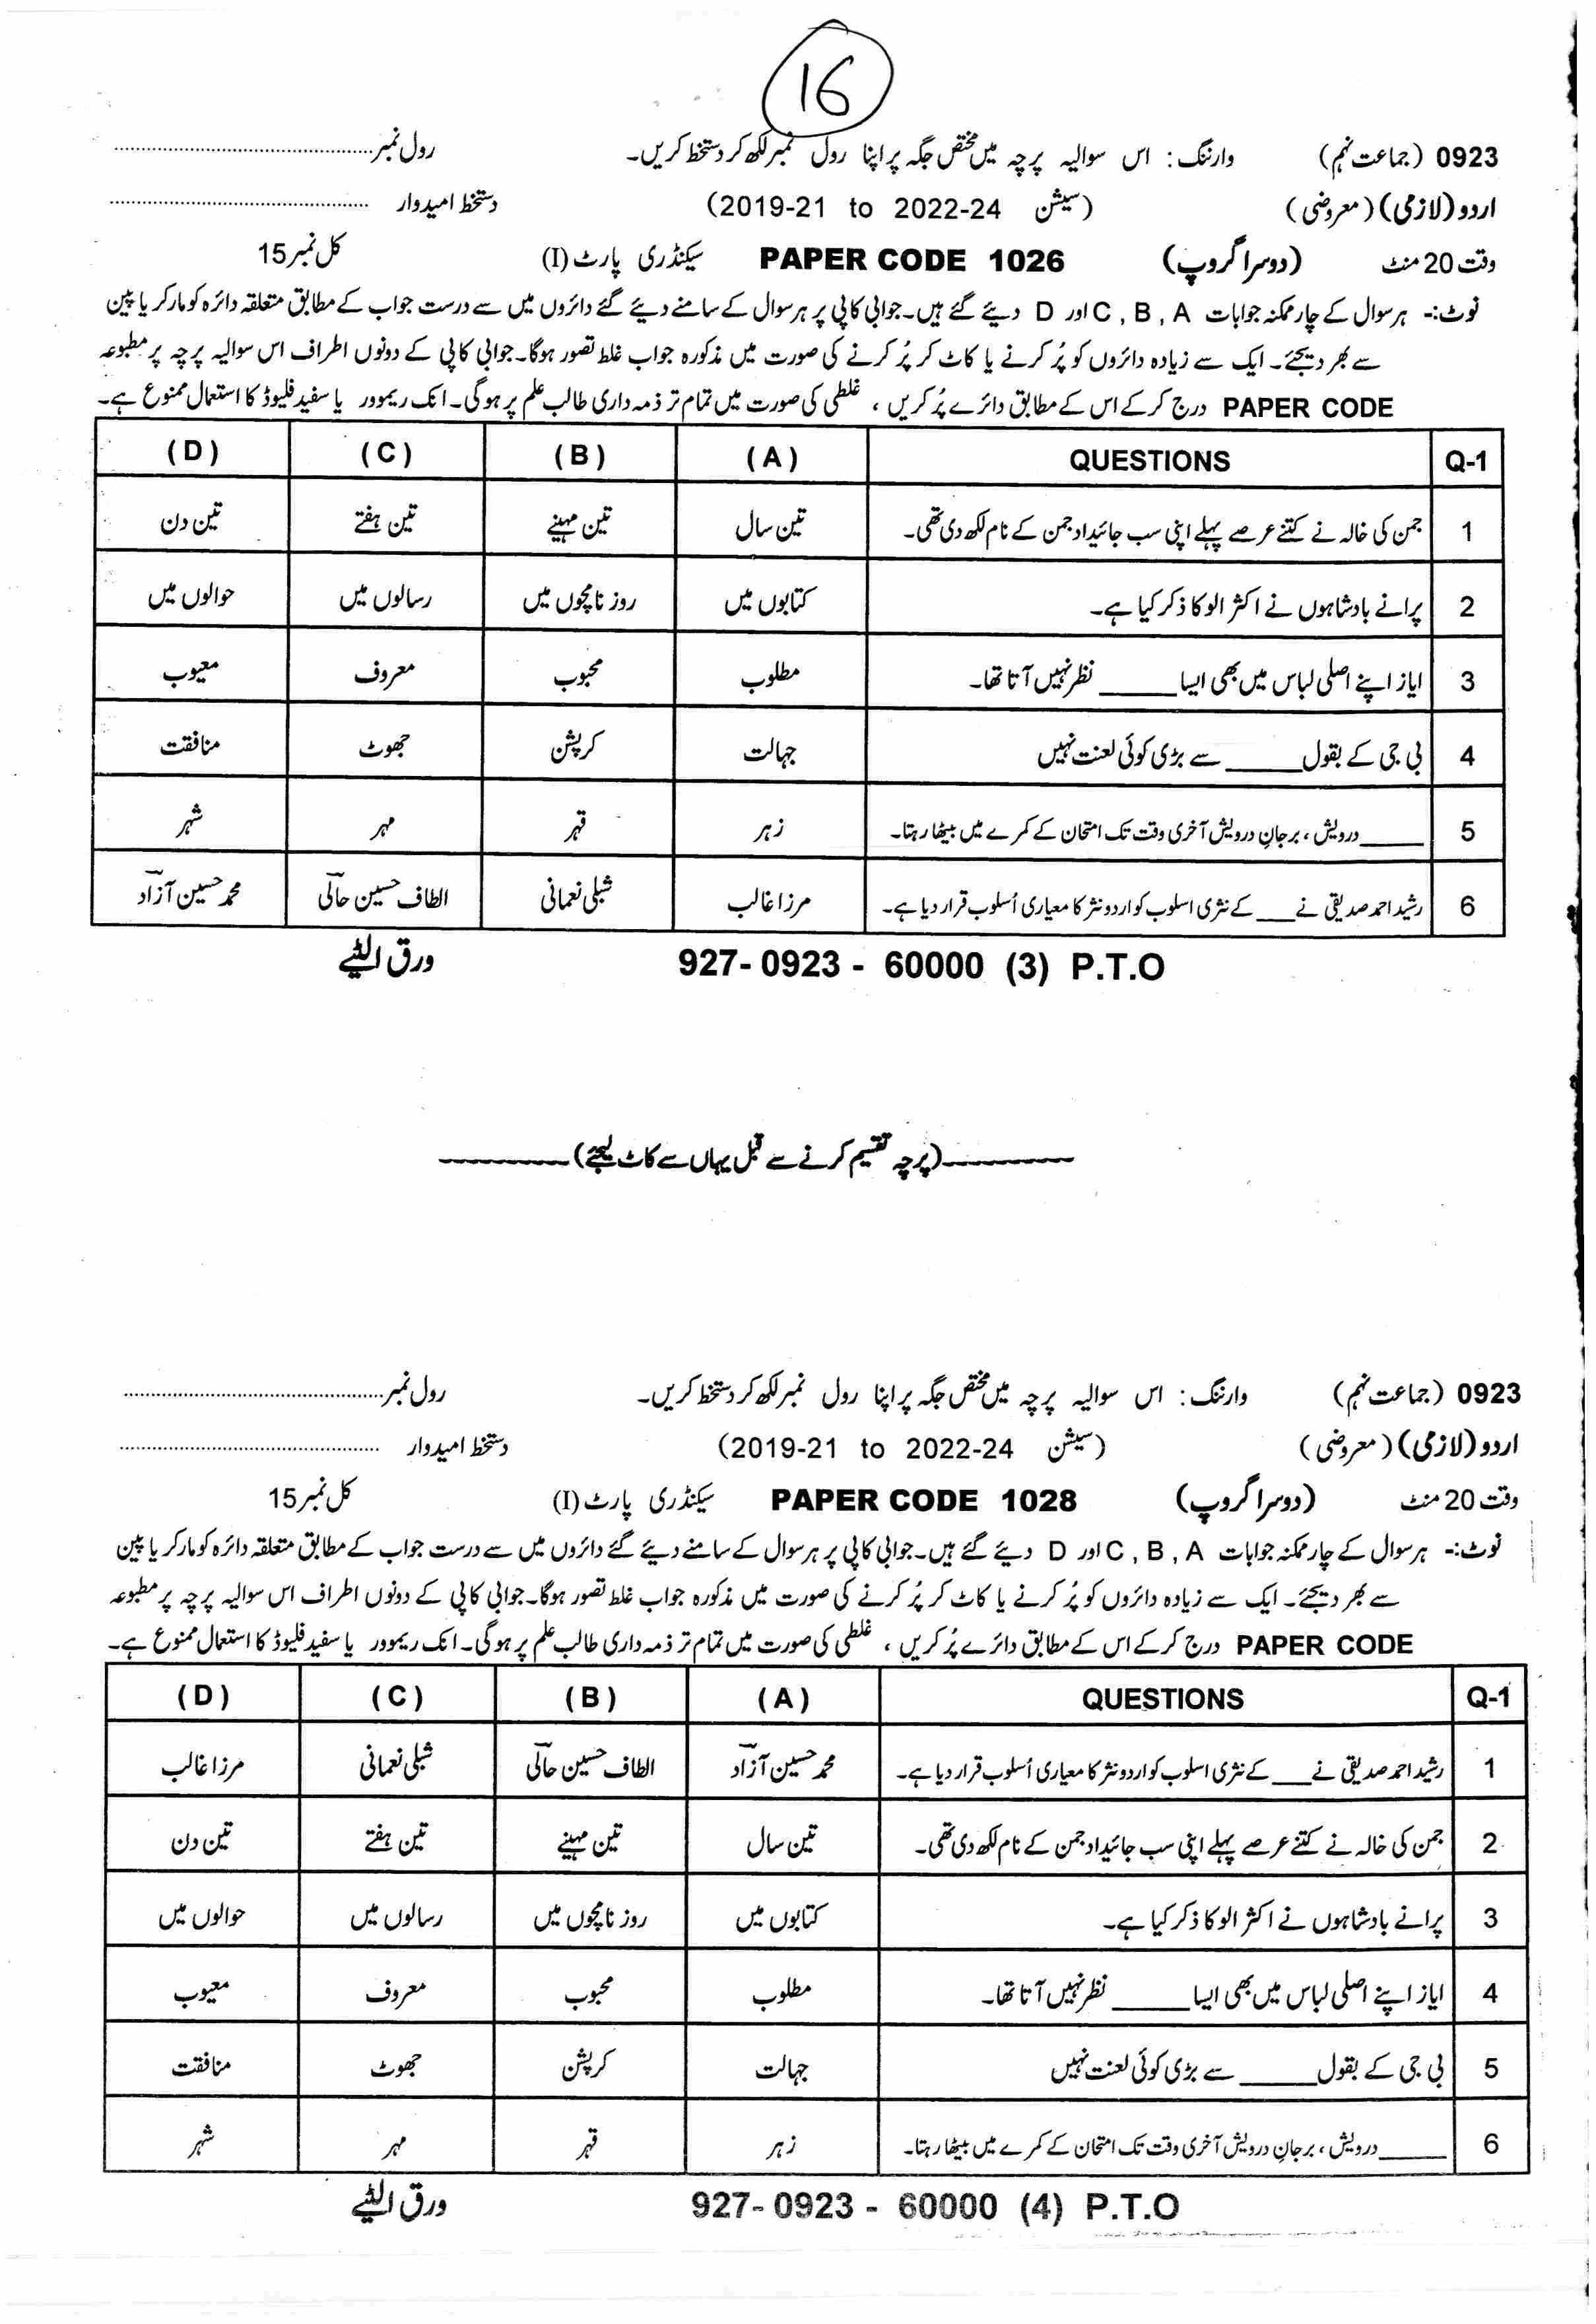 16
0923 (جماعت نہم) وارننگ: اس سوالیہ پرچہ میں مختص جگہ پر اپنا رول نمبر لکھ کر دستخط کریں۔ رول نمبر
اردو (لازمی) (معروضی) (سیشن 2022-24 to 2019-21) دستخط امیدوار
وقت 20 منٹ (دوسرا گروپ) PAPER CODE 1026 سیکنڈری پارٹ (I) کل نمبر 15
نوٹ:- ہر سوال کے چار ممکنہ جوابات A , B , C اور D دیئے گئے ہیں۔ جوابی کاپی پر ہر سوال کے سامنے دیئے گئے دائروں میں سے درست جواب کے مطابق متعلقہ دائرہ کو مارکر یا پین
سے بھر دیجئے۔ ایک سے زیادہ دائروں کو پُر کرنے یا کاٹ کر پُر کرنے کی صورت میں مذکورہ جواب غلط تصور ہوگا۔ جوابی کاپی کے دونوں اطراف اس سوالیہ پرچہ پر مطبوعہ
PAPER CODE درج کرکے اس کے مطابق دائرے پُر کریں ، غلطی کی صورت میں تمام تر ذمہ داری طالب علم پر ہوگی۔ انک ریموور یا سفید فلیوڈ کا استعمال ممنوع ہے۔
Q-1 QUESTIONS (A) (B) (C) (D)
1 جمن کی خالہ نے کتنے عرصے پہلے اپنی سب جائیداد جمن کے نام لکھ دی تھی۔ تین سال تین مہینے تین ہفتے تین دن
2 پرانے بادشاہوں نے اکثر الو کا ذکر کیا ہے۔ کتابوں میں روزنامچوں میں رسالوں میں حوالوں میں
3 ایاز اپنے اصلی لباس میں بھی ایسا ______ نظر نہیں آتا تھا۔ مطلوب محبوب معروف معیوب
4 بی جی کے بقول ______ سے بڑی کوئی لعنت نہیں جہالت کرپشن جھوٹ منافقت
5 ______ درویش ، برجانِ درویش آخری وقت تک امتحان کے کمرے میں بیٹھا رہتا۔ زہر قہر مہر شہر
6 رشید احمد صدیقی نے ____ کے نثری اسلوب کو اردو نثر کا معیاری اُسلوب قرار دیا ہے۔ مرزا غالب شبلی نعمانی الطاف حسین حالی محمد حسین آزاد
927- 0923 - 60000 (3) P.T.O ورق الٹیے
(پرچہ تقسیم کرنے سے قبل یہاں سے کاٹ لیجئے)
0923 (جماعت نہم) وارننگ: اس سوالیہ پرچہ میں مختص جگہ پر اپنا رول نمبر لکھ کر دستخط کریں۔ رول نمبر
اردو (لازمی) (معروضی) (سیشن 2022-24 to 2019-21) دستخط امیدوار
وقت 20 منٹ (دوسرا گروپ) PAPER CODE 1028 سیکنڈری پارٹ (I) کل نمبر 15
نوٹ:- ہر سوال کے چار ممکنہ جوابات A , B , C اور D دیئے گئے ہیں۔ جوابی کاپی پر ہر سوال کے سامنے دیئے گئے دائروں میں سے درست جواب کے مطابق متعلقہ دائرہ کو مارکر یا پین
سے بھر دیجئے۔ ایک سے زیادہ دائروں کو پُر کرنے یا کاٹ کر پُر کرنے کی صورت میں مذکورہ جواب غلط تصور ہوگا۔ جوابی کاپی کے دونوں اطراف اس سوالیہ پرچہ پر مطبوعہ
PAPER CODE درج کرکے اس کے مطابق دائرے پُر کریں ، غلطی کی صورت میں تمام تر ذمہ داری طالب علم پر ہوگی۔ انک ریموور یا سفید فلیوڈ کا استعمال ممنوع ہے۔
Q-1 QUESTIONS (A) (B) (C) (D)
1 رشید احمد صدیقی نے ____ کے نثری اسلوب کو اردو نثر کا معیاری اُسلوب قرار دیا ہے۔ محمد حسین آزاد الطاف حسین حالی شبلی نعمانی مرزا غالب
2 جمن کی خالہ نے کتنے عرصے پہلے اپنی سب جائیداد جمن کے نام لکھ دی تھی۔ تین سال تین مہینے تین ہفتے تین دن
3 پرانے بادشاہوں نے اکثر الو کا ذکر کیا ہے۔ کتابوں میں روزنامچوں میں رسالوں میں حوالوں میں
4 ایاز اپنے اصلی لباس میں بھی ایسا ______ نظر نہیں آتا تھا۔ مطلوب محبوب معروف معیوب
5 بی جی کے بقول ______ سے بڑی کوئی لعنت نہیں جہالت کرپشن جھوٹ منافقت
6 ______ درویش ، برجانِ درویش آخری وقت تک امتحان کے کمرے میں بیٹھا رہتا۔ زہر قہر مہر شہر
927- 0923 - 60000 (4) P.T.O ورق الٹیے